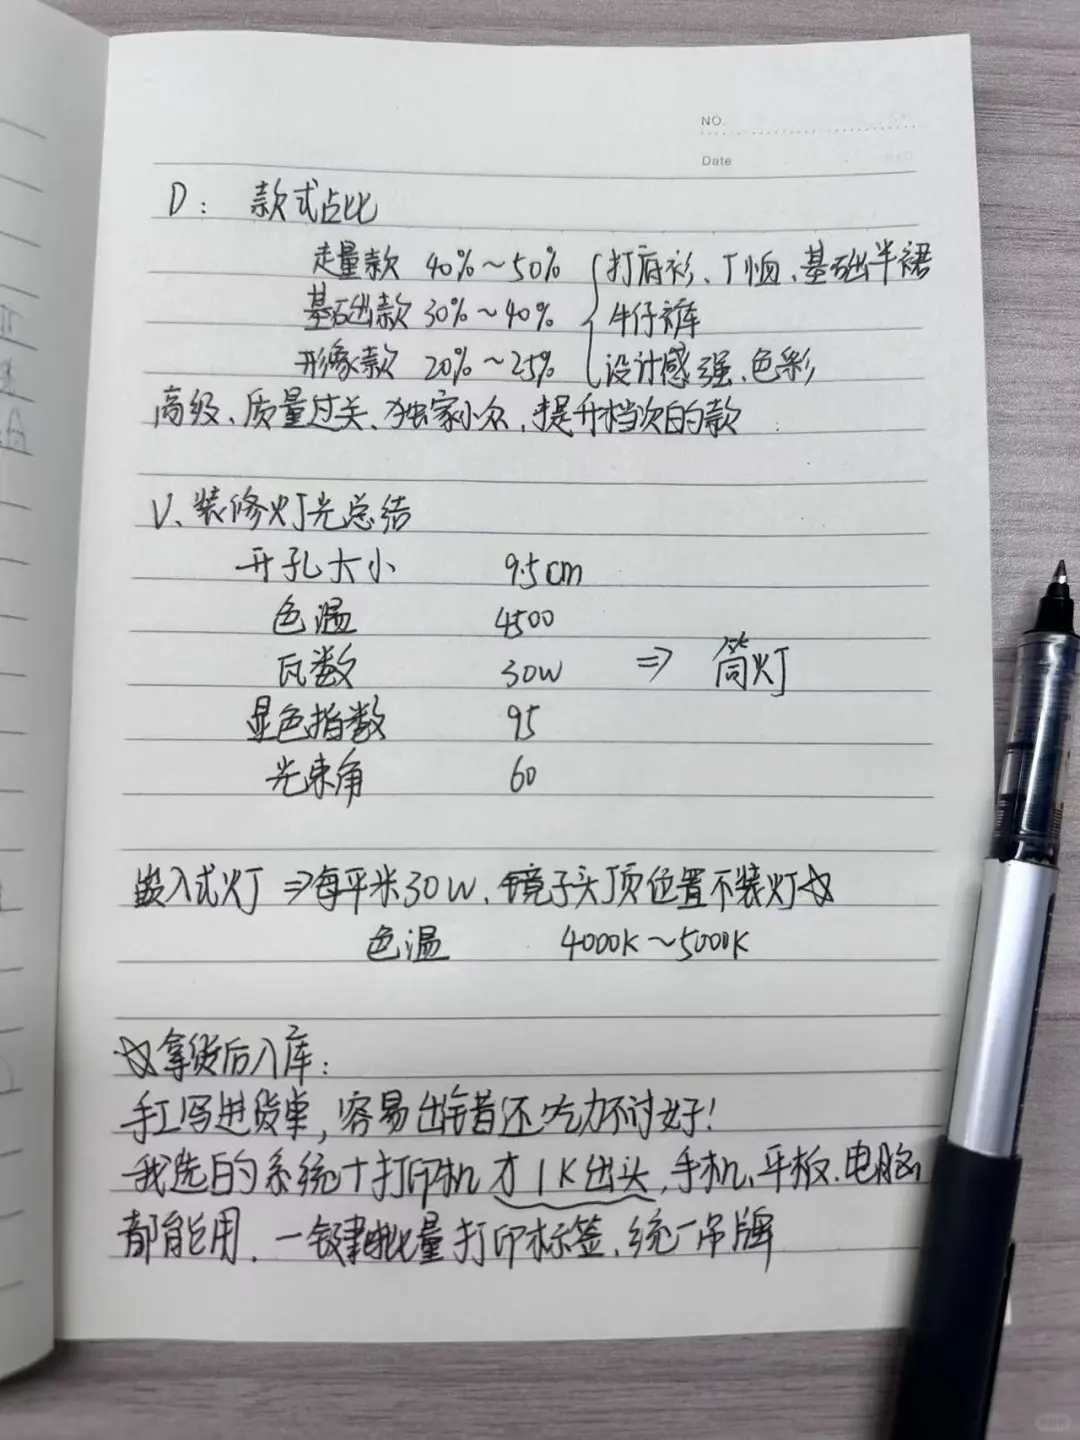 NO.
Date
D: 款式占比
走量款 40%~50% { 打底衫、T恤、基础半裙
基础款 30%~40% 牛仔裤
形象款 20%~25% 设计感强、色彩
高级、质量过关、独家小众,提升档次的款
V、装修灯光总结
开孔大小 9.5cm
色温 4500
瓦数 30W ⇒ 筒灯
显色指数 95
光束角 60
嵌入式灯 ⇒每平米30W、镜子头顶位置不装灯☆
色温 4000K~5000K
☆拿货后入库:
手工写进货单,容易出错还吃力不讨好!
我选的系统+打印机才1K出头,手机、平板、电脑
都能用、一键批量打印标签、统一吊牌